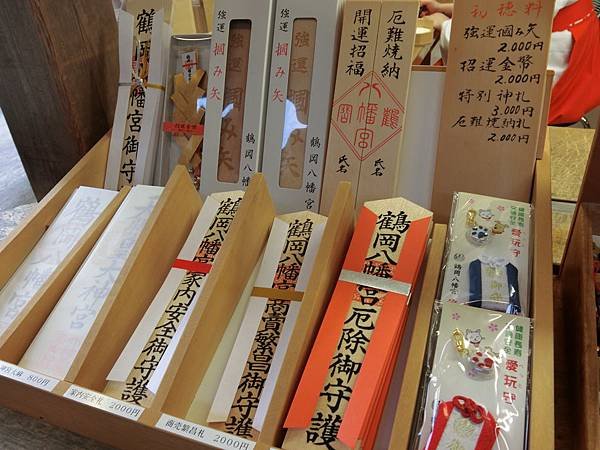 鶴岡八幡宮御守護
強運
掴み矢
強運
掴み矢
鶴岡八幡宮
鶴岡八幡宮
開運招福
厄難焼納
鶴岡
八幡宮
氏名
氏名
祝穂料
強運掴み矢
2,000円
招運金幣
2,000円
特別神札
3,000円
厄難焼納札
2,000円
鶴岡八幡宮家内安全御守護
鶴岡八幡宮商賣繁昌御守護
鶴岡八幡宮厄除御守護
健康長寿
交通安全
愛玩守
鶴岡八幡宮
健康長寿
愛玩守
800円
家内安全札 2000円
商売繁昌札 2000円